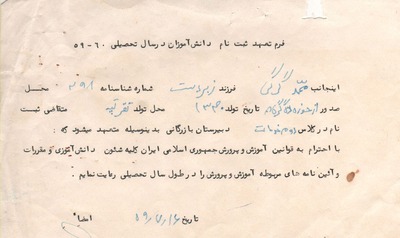 فرم تعهد ثبت نام دانش‌آموزان در سال تحصیلی ۶۰-۵۹
اینجانب محمد گرگی فرزند زبردست شماره شناسنامه ۳۹۸ محل
صدور از حوزه گرگان تاریخ تولد ۱۳۴۰ محل تولد متقاضی ثبت
نام در کلاس دبیرستان بازرگانی بدینوسیله متعهد میشود که :
با احترام به قوانین آموزش و پرورش جمهوری اسلامی ایران کلیه شئون دانش‌آموزی و مقررات
و آئین نامه های مربوطه آموزش و پرورش را در طول سال تحصیلی رعایت نمایم .
تاریخ ۵۹/۷/۱۶ امضاء